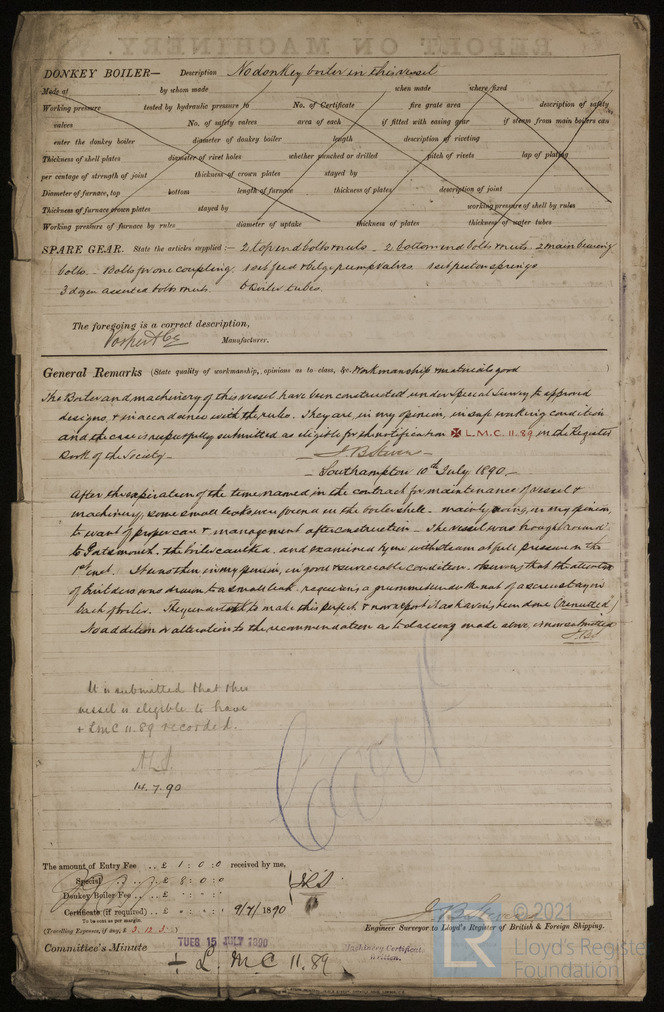 REPORT ON MACHINERY.
DONKEY BOILER— Description No donkey boiler in this vessel
Made at by whom made when made where fixed
Working pressure tested by hydraulic pressure to No. of Certificate fire grate area description of safety
valves No. of safety valves area of each if fitted with easing gear if steam from main boilers can
enter the donkey boiler diameter of donkey boiler length description of riveting
Thickness of shell plates diameter of rivet holes whether punched or drilled pitch of rivets lap of plating
per centage of strength of joint thickness of crown plates stayed by
Diameter of furnace, top bottom length of furnace thickness of plates description of joint
Thickness of furnace crown plates stayed by working pressure of shell by rules
Working pressure of furnace by rules diameter of uptake thickness of plates thickness of water tubes
SPARE GEAR. State the articles supplied:— 2 top end bolts & nuts – 2 bottom end bolts & nuts – 2 main bearing
bolts – Bolts for one coupling, 1 set feed & bilge pump valves 1 set piston springs
3 dozen assorted bolts & nuts. 6 Boiler tubes.
The foregoing is a correct description,
Vosper & Co Manufacturer.
General Remarks (State quality of workmanship, opinions as to class, &c. Workmanship & materials good )
The Boiler and machinery of this vessel have been constructed under Special Survey to approved
designs, & in accordance with the rules. They are, in my opinion, in safe working condition
and the case is respectfully submitted as eligible for the notification ✠ L.M.C. 11.89 in the Register
Book of the Society –
– Southampton 10th July 1890. –
After the expiration of the time named in the contract for maintenance of vessel &
machinery, some small leaks were found in the boiler shell – mainly owing, in my opinion,
to want of proper care & management after construction – The vessel was brought round
to Portsmouth, the boiler caulked, and examined by me with steam at full pressure on the
1st inst. It was then in my opinion, in good & serviceable condition – observing that the attention
of builders was drawn to a small leak, requiring a grummet under the nut of a screw stay on
back of boiler. They undertook to make this perfect & now report it as having been done (renutted)
No addition or alteration to the recommendation as to classing made above, is now submitted
J.B.S
It is submitted that this
vessel is eligible to have
+ LMC 11.89 recorded.
14.7.90
The amount of Entry Fee .. £ 1 : 0 : 0 received by me,
Special .. £ 8 : 0 : 0
Donkey Boiler Fee .. £ : :
Certificate (if required) .. £ : : 9/7/1890
To be sent as per margin.
(Travelling Expenses, if any, £ 3. 12. 5)
Engineer Surveyor to Lloyd's Register of British & Foreign Shipping.
Committee's Minute TUES 15 JULY 1890
+ L.M.C 11.89
Machinery Certificate
Written.
© 2021
LR
Lloyd's Register
Foundation